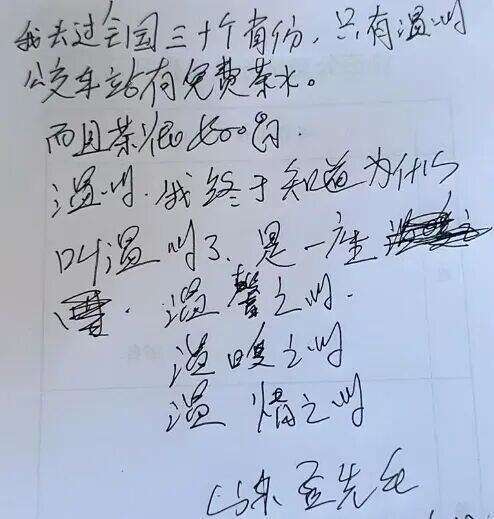 我去过全国三十个省份，只有温州
公交车站有免费茶水。
而且茶很好喝。
温州，我终于知道为什么
叫温州了、是一座
温馨之州．
温暖之州
温情之州
山东 先生